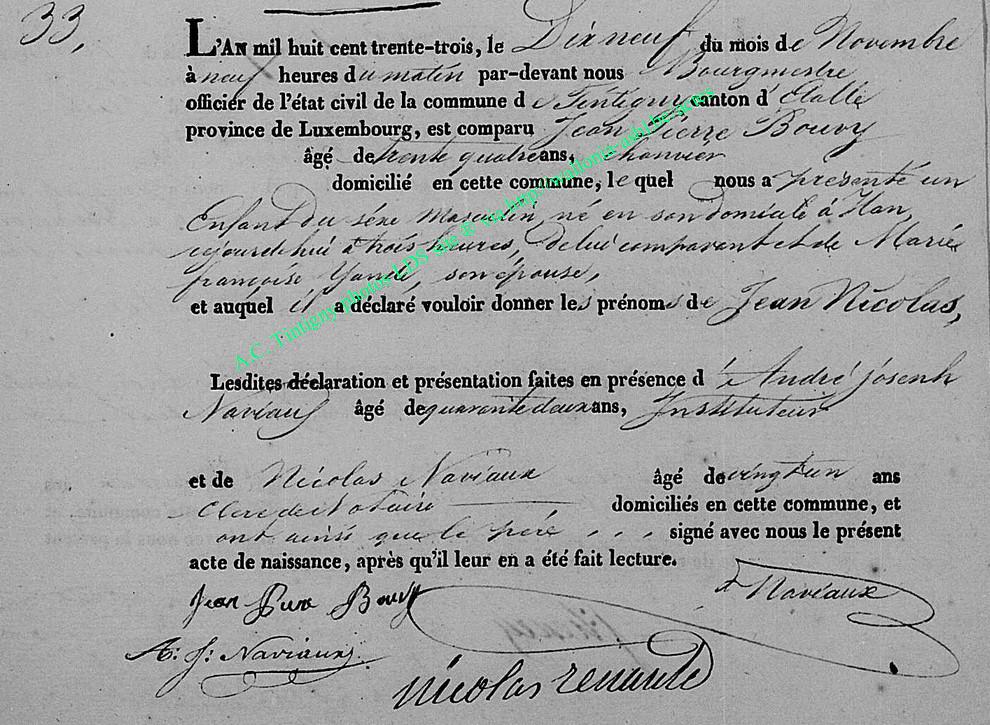 33,
L'AN mil huit cent trente-trois, le Dix neuf du mois de Novembre
à neuf heures du matin par-devant nous Bourgmestre
officier de l'état civil de la commune de Tintigny canton d'Etalle
province de Luxembourg, est comparu Jean Pierre Bouvy
âgé de trente quatre ans, Chanvier
domicilié en cette commune, lequel nous a présenté un
Enfant du séxe Masculin, né en son domicile à Han,
cejourd'hui à trois heures, de lui comparant et de Marie
françoise, son épouse,
et auquel il a déclaré vouloir donner les prénoms de Jean Nicolas,
Lesdites déclaration et présentation faites en présence d'André joseph
Naviaux âgé de quarante deux ans, Instituteur
et de Nicolas Naviaux âgé de vingt un ans
Clerc de Notaire domiciliés en cette commune, et
ont ainsi que le père signé avec nous le présent
acte de naissance, après qu'il leur en a été fait lecture.
Jean Piere Bouvy Naviaux
A: J: Naviaux
nicolas renauld
A.C. Tintigny photos LDS site &